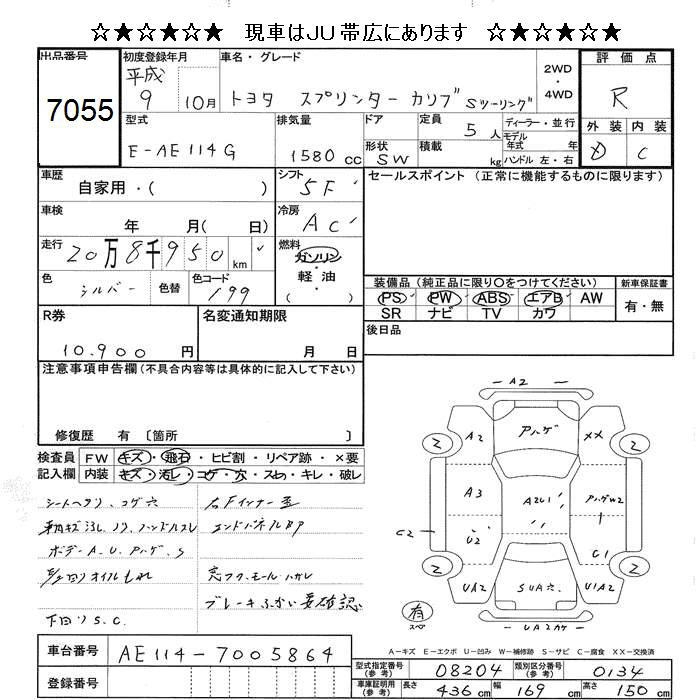 ☆★☆★☆★ 現車はJU帯広にあります ☆★☆★☆★
出品番号
7055
初度登録年月
平成
9 10月
車名・グレード
トヨタ スプリンターカリブ Sツーリング
2WD
・
4WD
評価点
R
外装 内装
D C
型式
E-AE114G
排気量
1580 cc
ドア
形状
SW
定員
5人
積載
kg
ディーラー・並行
モデル
年式 年
ハンドル 左・右
車歴
自家用・( )
シフト
5F
セールスポイント (正常に機能するものに限ります)
車検
年 月( 日)
冷房
AC
走行
20万8千950km
燃料
ガソリン
・
軽油
( )
色
シルバー
色替
色コード
199
装備品 (純正品に限り○をつけてください)
PS PW ABS エアB AW
SR ナビ TV カワ
新車保証書
有・無
R券
10.900 円
名変通知期限
月 日
後日品
注意事項申告欄 (不具合内容等は具体的に記入して下さい)
修復歴 有 〔箇所 〕
検査員
記入欄
FW キズ・飛石・ヒビ割・リペア跡・×要
内装 キズ・汚レ・コゲ・穴・スレ・キレ・破レ
シートヘタリ、コゲ穴
ボデーA.U.Pハゲ.S
下回りS.C.
右Fインナー歪
エンドパネルBP
モールハガレ
ブレーキふかい要確認
A2
A2
Pハゲ
XX
2
2
A3
A2U1
PハゲW2
C2
U2
C1
2
2
UA2
SUA穴
U1A2
有
スペ
UA2Aケ
A-キズ E-エクボ U-凹み W-補修跡 S-サビ C-腐食 XX-交換済
車台番号
AE114-7005864
登録番号
型式指定番号
(参考)
08204
類別区分番号
(参考)
0134
車庫証明用
(参考)
長さ 436cm 幅 169cm 高さ 150cm